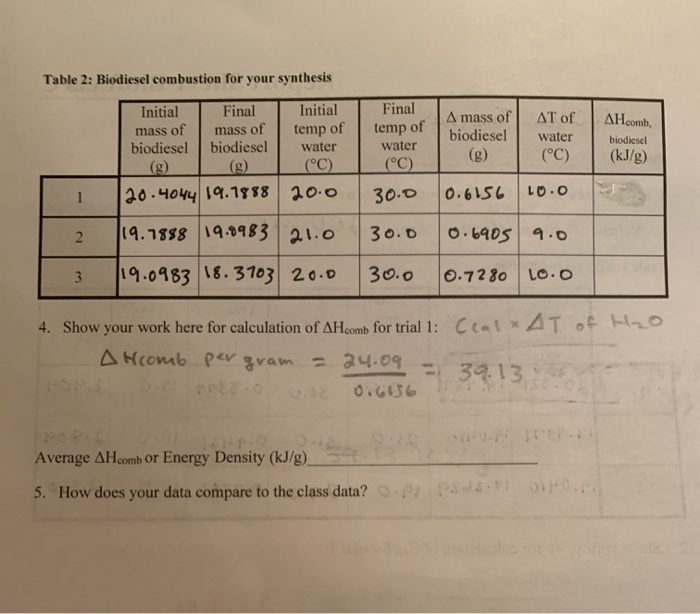 Table 2: Biodiesel combustion for your synthesis
Initial mass of biodiesel (g) Final mass of biodiesel (g) Initial temp of water (°C) Final temp of water (°C) Δ mass of biodiesel (g) ΔT of water (°C) ΔHcomb, biodiesel (kJ/g)
1 20.4044 19.7888 20.0 30.0 0.6156 10.0
2 19.7888 19.0983 21.0 30.0 0.6905 9.0
3 19.0983 18.3703 20.0 30.0 0.7280 10.0
4. Show your work here for calculation of ΔHcomb for trial 1: Ccal × ΔT of H2O
ΔHcomb per gram = 24.09 / 0.6156 = 39.13
Average ΔHcomb or Energy Density (kJ/g)
5. How does your data compare to the class data?